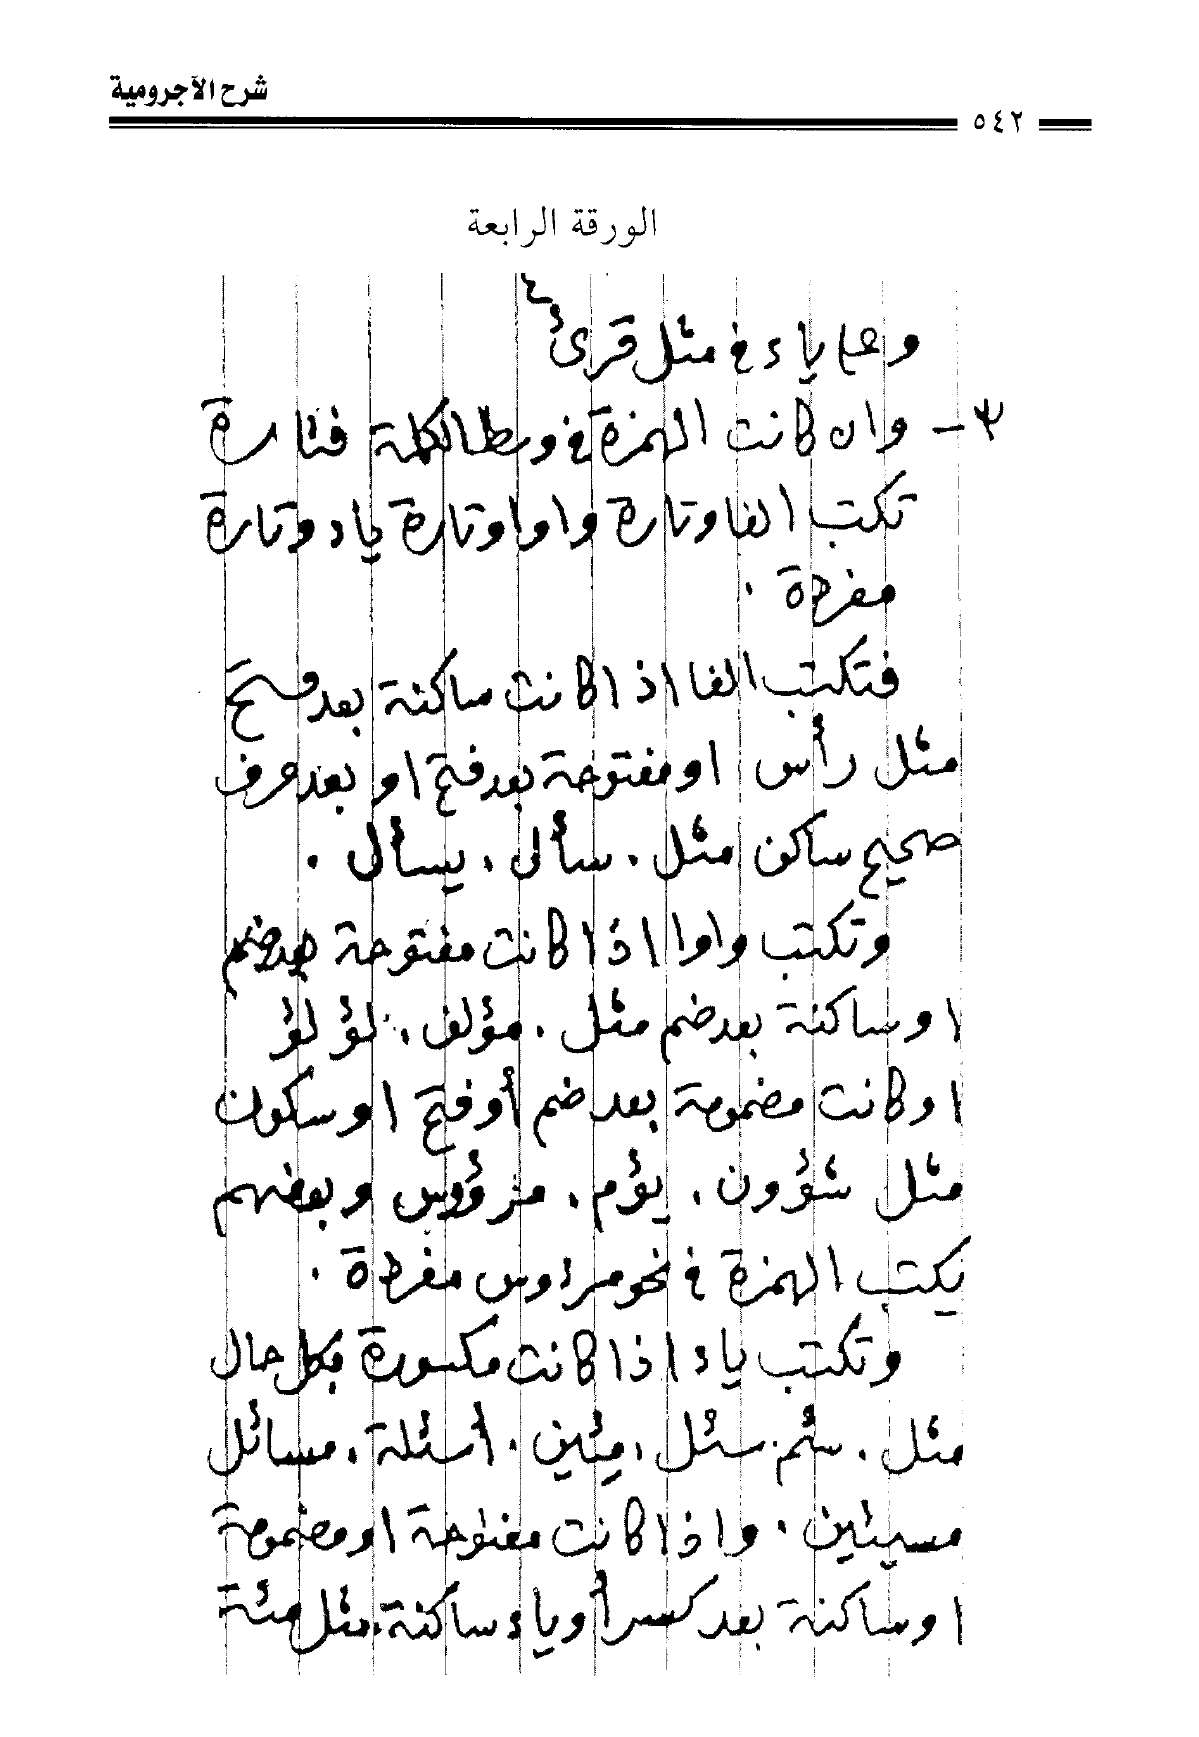 شرح الآجرومية
٥٤٢
الورقة الرابعة
٤
وعلى ياء في مثل قرئ
٣- وان كانت الهمزة في وسط الكلمة فتارة
تكتب الفا وتارة واوا وتارة ياء وتارة
مفردة .
فتكتب الفا اذا كانت ساكنة بعد فتح
مثل رأس او مفتوحة بعد فتح او بعد حرف
صحيح ساكن مثل . سأل . يسأل .
وتكتب واوا اذا كانت مفتوحة بعد ضم
او ساكنة بعد ضم مثل . مؤلف . لؤلؤ
او كانت مضمومة بعد ضم أو فتح او سكون
مثل شؤون . يؤم . مرؤوس وبعضهم
يكتب الهمزة في نحو مرءوس مفردة .
وتكتب ياء اذا كانت مكسورة بكل حال
مثل . سئم . سئل . مئين . أسئلة . مسائل
مسيئين . واذا كانت مفتوحة او مضمومة
او ساكنة بعد كسر أو ياء ساكنة . مثل مئة